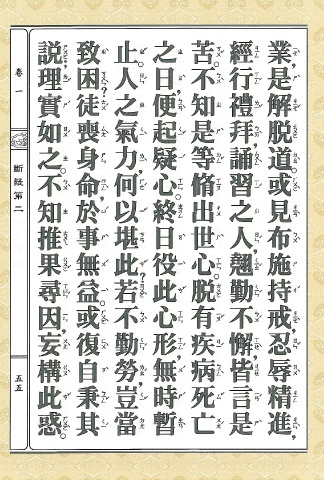 業是解脱道。或見布施持戒忍辱精進,
經行禮拜,誦習之人,翹勤不懈,皆言是
苦。不知是等脩出世心。脱有疾病死亡
之日,便起疑心。終日役此心形,無時暫
止。人之氣力何以堪此?若不勤勞,豈當
致困?徒喪身命,於事無益。或復自秉其
説,理實如之。不知推果尋因,妄構此惑。
卷一
斷疑第二
五五